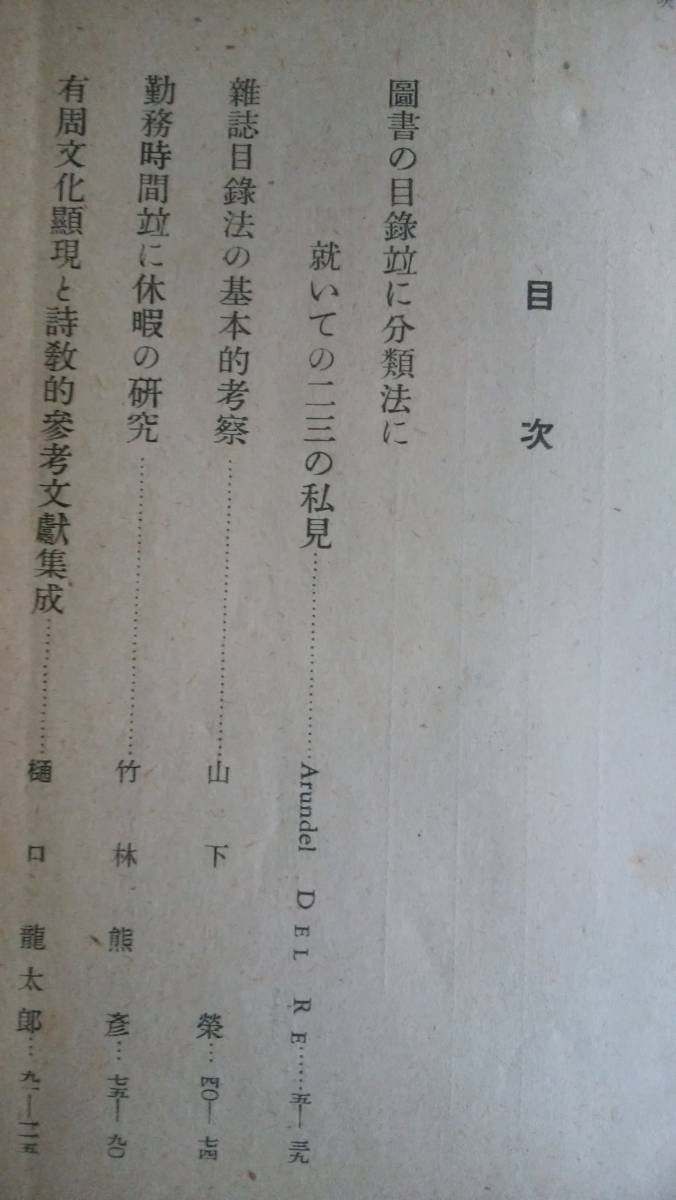 目次
圖書の目錄竝に分類法に
就いての二三の私見……………………Arundel DEL RE……五―三九
雜誌目錄法の基本的考察……………………山下榮…四〇―七四
勤務時間竝に休暇の硏究……………………竹林熊彥…七五―九〇
有周文化顯現と詩敎的參考文獻集成……………樋口龍太郎…九一―一二五